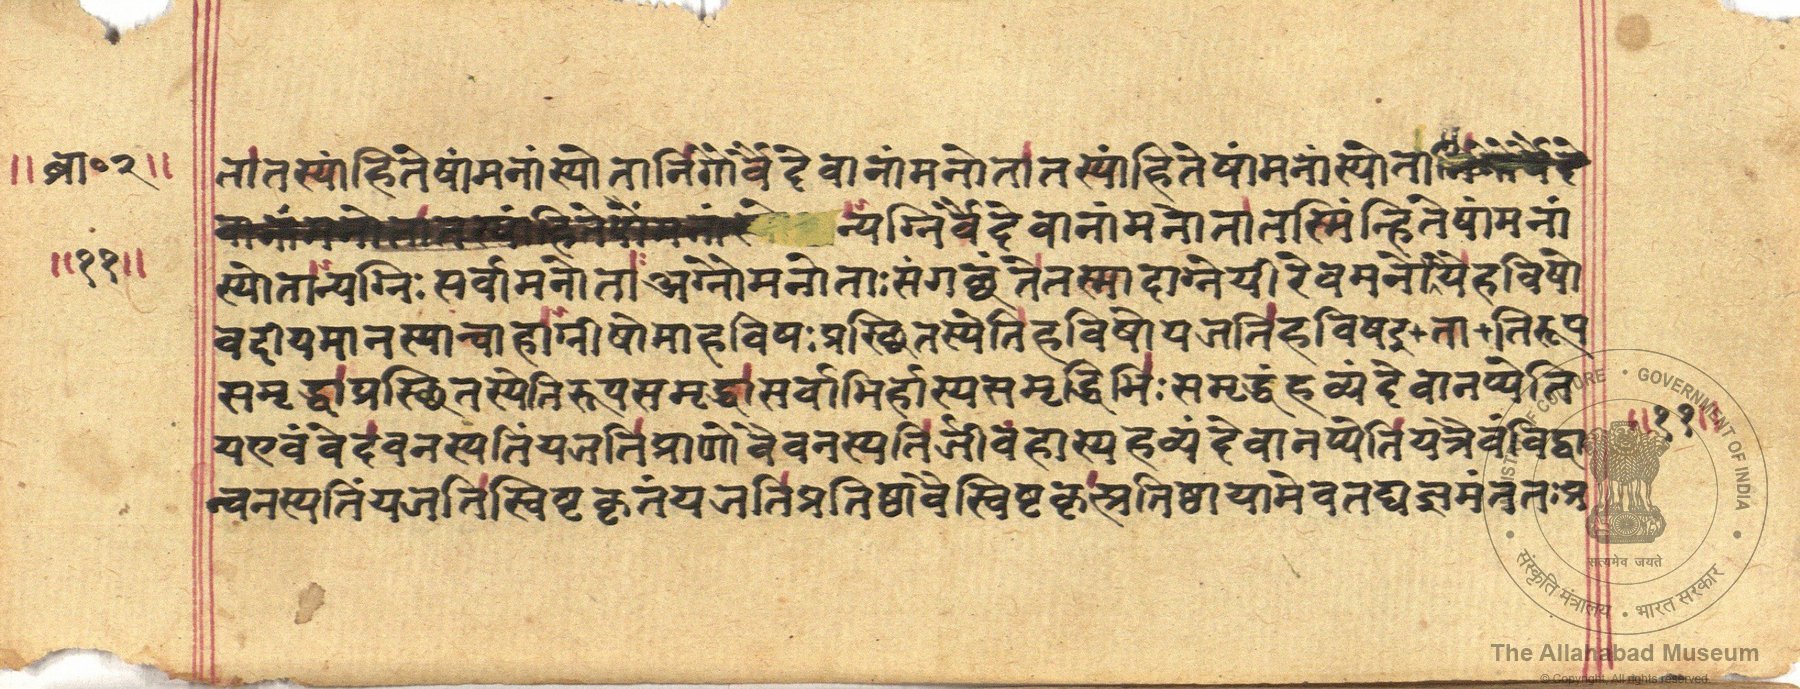 ॥ब्रा०२॥
॥११॥
तातस्यांहितेषांमनांस्योतानिगौर्वैदेवानांमनोतातस्यांहितेषांमनांस्योता
न्यग्निर्वैदेवानांमनोतातस्मिंन्हितेषांमनां
स्योतान्यग्निःसर्वामनोताअग्नौमनोताःसंगछंतेतस्मादाग्नेयीरेवमनोतायैहविषो
वदीयमानस्यान्वाहाग्नीषोमाहविषःप्रस्थितस्येतिहविषोयजतिहविषइ+ता+तिरूप
समृद्धाप्रस्थितस्येतिरूपसमृद्धासर्वाभिर्हास्यसमृद्धिभिःसमृद्धंहव्यंदेवानप्येति
यएवंवेदवनस्पतिंयजतिप्राणोवैवनस्पतिर्जीवंहास्यहव्यंदेवानप्येतियत्रैवंविद्वा
न्वनस्पतिंयजतिस्विष्टकृतंयजतिप्रतिष्ठावैस्विष्टकृत्प्रतिष्ठायामेवतद्यज्ञमंततःप्र
॥११॥
MINISTRY OF CULTURE • GOVERNMENT OF INDIA
सत्यमेव जयते
संस्कृति मंत्रालय • भारत सरकार
The Allahabad Museum
© Copyright, All rights reserved.